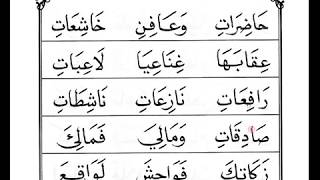 حَاضِرَاتِ وَعَافِنِ خَاشِعَاتِ
عِقَابَهَا غِنَاعِيَا لَاعِبَاتِ
رَافِعَاتِ نَازِعَاتِ نَاشِطَاتِ
صَادِقَاتِ وَمَالِيَ فَمَالِئَ
زَكَاتِكَ فَوَاحِشَ لَوَاقِعَ